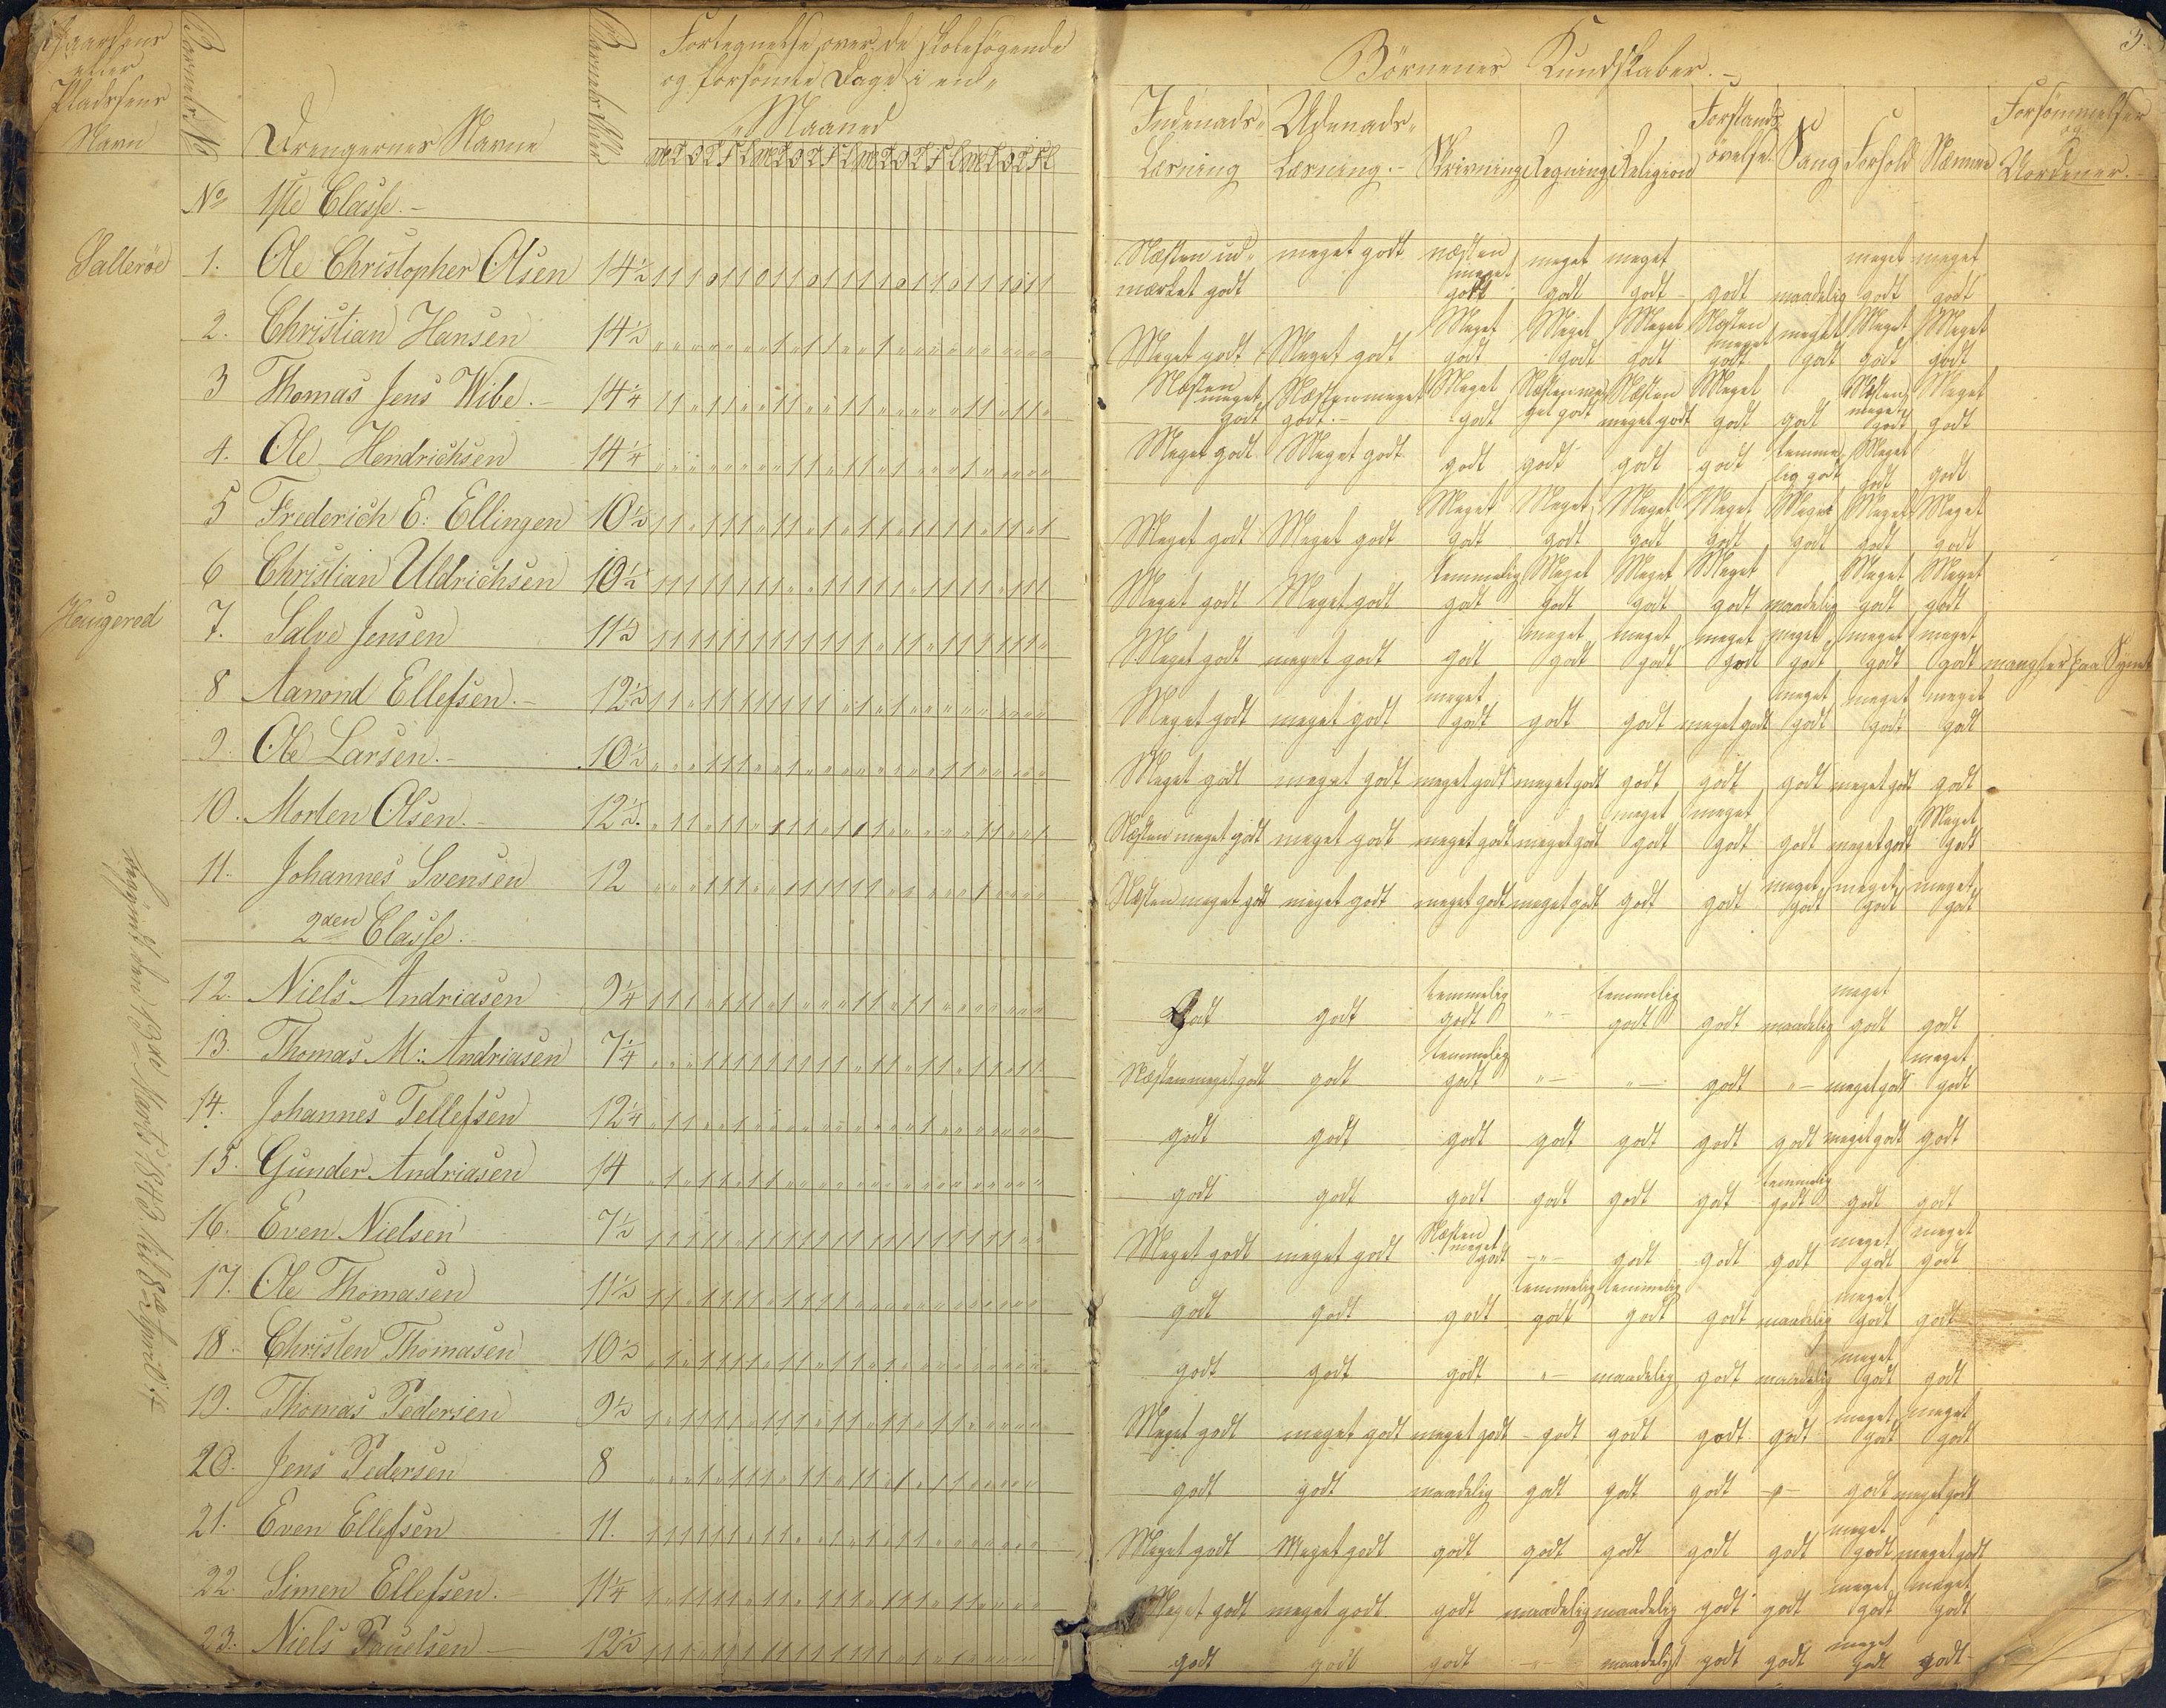 Gaardens eller Pladsens Navn
Barnets No
Drengernes Navne
Barnets Alder
Fortegnelse over de skolesøgende
og forsømte Dage i en
Maaned
M T O T F L M T O T F L M T O T F L M T O T F L
No 1ste Classe.
Sallerøe 1. Ole Christopher Olsen 14½
2. Christian Hansen 14½
3 Thomas Jens Wibe. 14¼
4. Ole Hendrichsen 14¼
5 Frederich E: Ellingen 10½
6 Christian Uldrichsen 10½
Haugered 7. Salve Jensen 11½
8 Aanond Ellefsen. 12½
9. Ole Larsen. 10½
10. Morten Olsen. 12½.
11. Johannes Svensen 12
2den Classe.
12. Niels Andriasen 9¼
13. Thomas M: Andriasen 7¼
14. Johannes Tellefsen 12¼
15. Gunder Andriasen 14
16. Even Nielsen 7½
17. Ole Thomasen 11½
18. Christen Thomasen 10½
19. Thomas Pedersen 9½
20. Jens Pedersen 8
21. Even Ellefsen 11.
22. Simen Ellefsen. 11¼
23. Niels Pauelsen 12½
Begyndt den 13de Marts 1843 til 8de April d: A:
3.
Børnenes Kundskaber.
Indenads-Læsning
Udenads-Læsning.
Skrivning
Regning
Religion
Forstands øvelse
Sang
Forhold
Nemme
Forsømmelser og Uordener.
Næsten udmærket godt meget godt næsten meget godt meget godt meget godt godt maadelig meget godt meget godt
Meget godt Meget godt Meget godt Meget godt Meget godt Næsten meget godt meget godt Meget godt Meget godt
Næsten meget godt Næsten meget godt. Meget godt Næsten meget godt Næsten meget godt Meget godt godt Næsten meget godt Meget godt
Meget godt Meget godt godt godt godt godt temmelig godt Meget godt godt
Meget godt Meget godt Meget godt Meget godt Meget godt Meget godt Meget godt Meget godt Meget godt
Meget godt Meget godt temmelig godt Meget godt Meget godt Meget godt maadelig Meget godt Meget godt
Meget godt meget godt godt meget godt meget godt meget godt meget godt meget godt meget godt paa Synet
Meget godt meget godt meget godt godt godt meget godt meget godt meget godt meget godt
Meget godt meget godt meget godt meget godt godt godt godt meget godt godt
Næsten meget godt meget godt meget godt meget godt meget godt meget godt godt meget godt Meget godt
Næsten meget godt meget godt meget godt meget godt godt godt meget godt meget godt meget godt
Godt godt temmelig godt " temmelig godt godt maadelig meget godt godt
Næsten meget godt godt temmelig godt " " godt " meget godt meget godt
godt godt godt godt godt godt godt meget godt godt
godt godt godt godt godt godt temmelig godt godt godt
Meget godt meget godt Næsten meget godt " godt godt godt meget godt meget godt
godt godt godt temmelig godt temmelig godt godt maadelig meget godt godt
godt godt godt " maadelig godt maadelig meget godt godt
Meget godt meget godt meget godt godt godt godt godt meget godt meget godt
godt godt maadelig godt godt godt " godt meget godt
Meget godt Meget godt godt godt godt godt godt meget godt meget godt
Meget godt meget godt. godt maadelig maadelig godt godt meget godt meget godt
godt godt godt " maadeligt godt godt meget godt godt